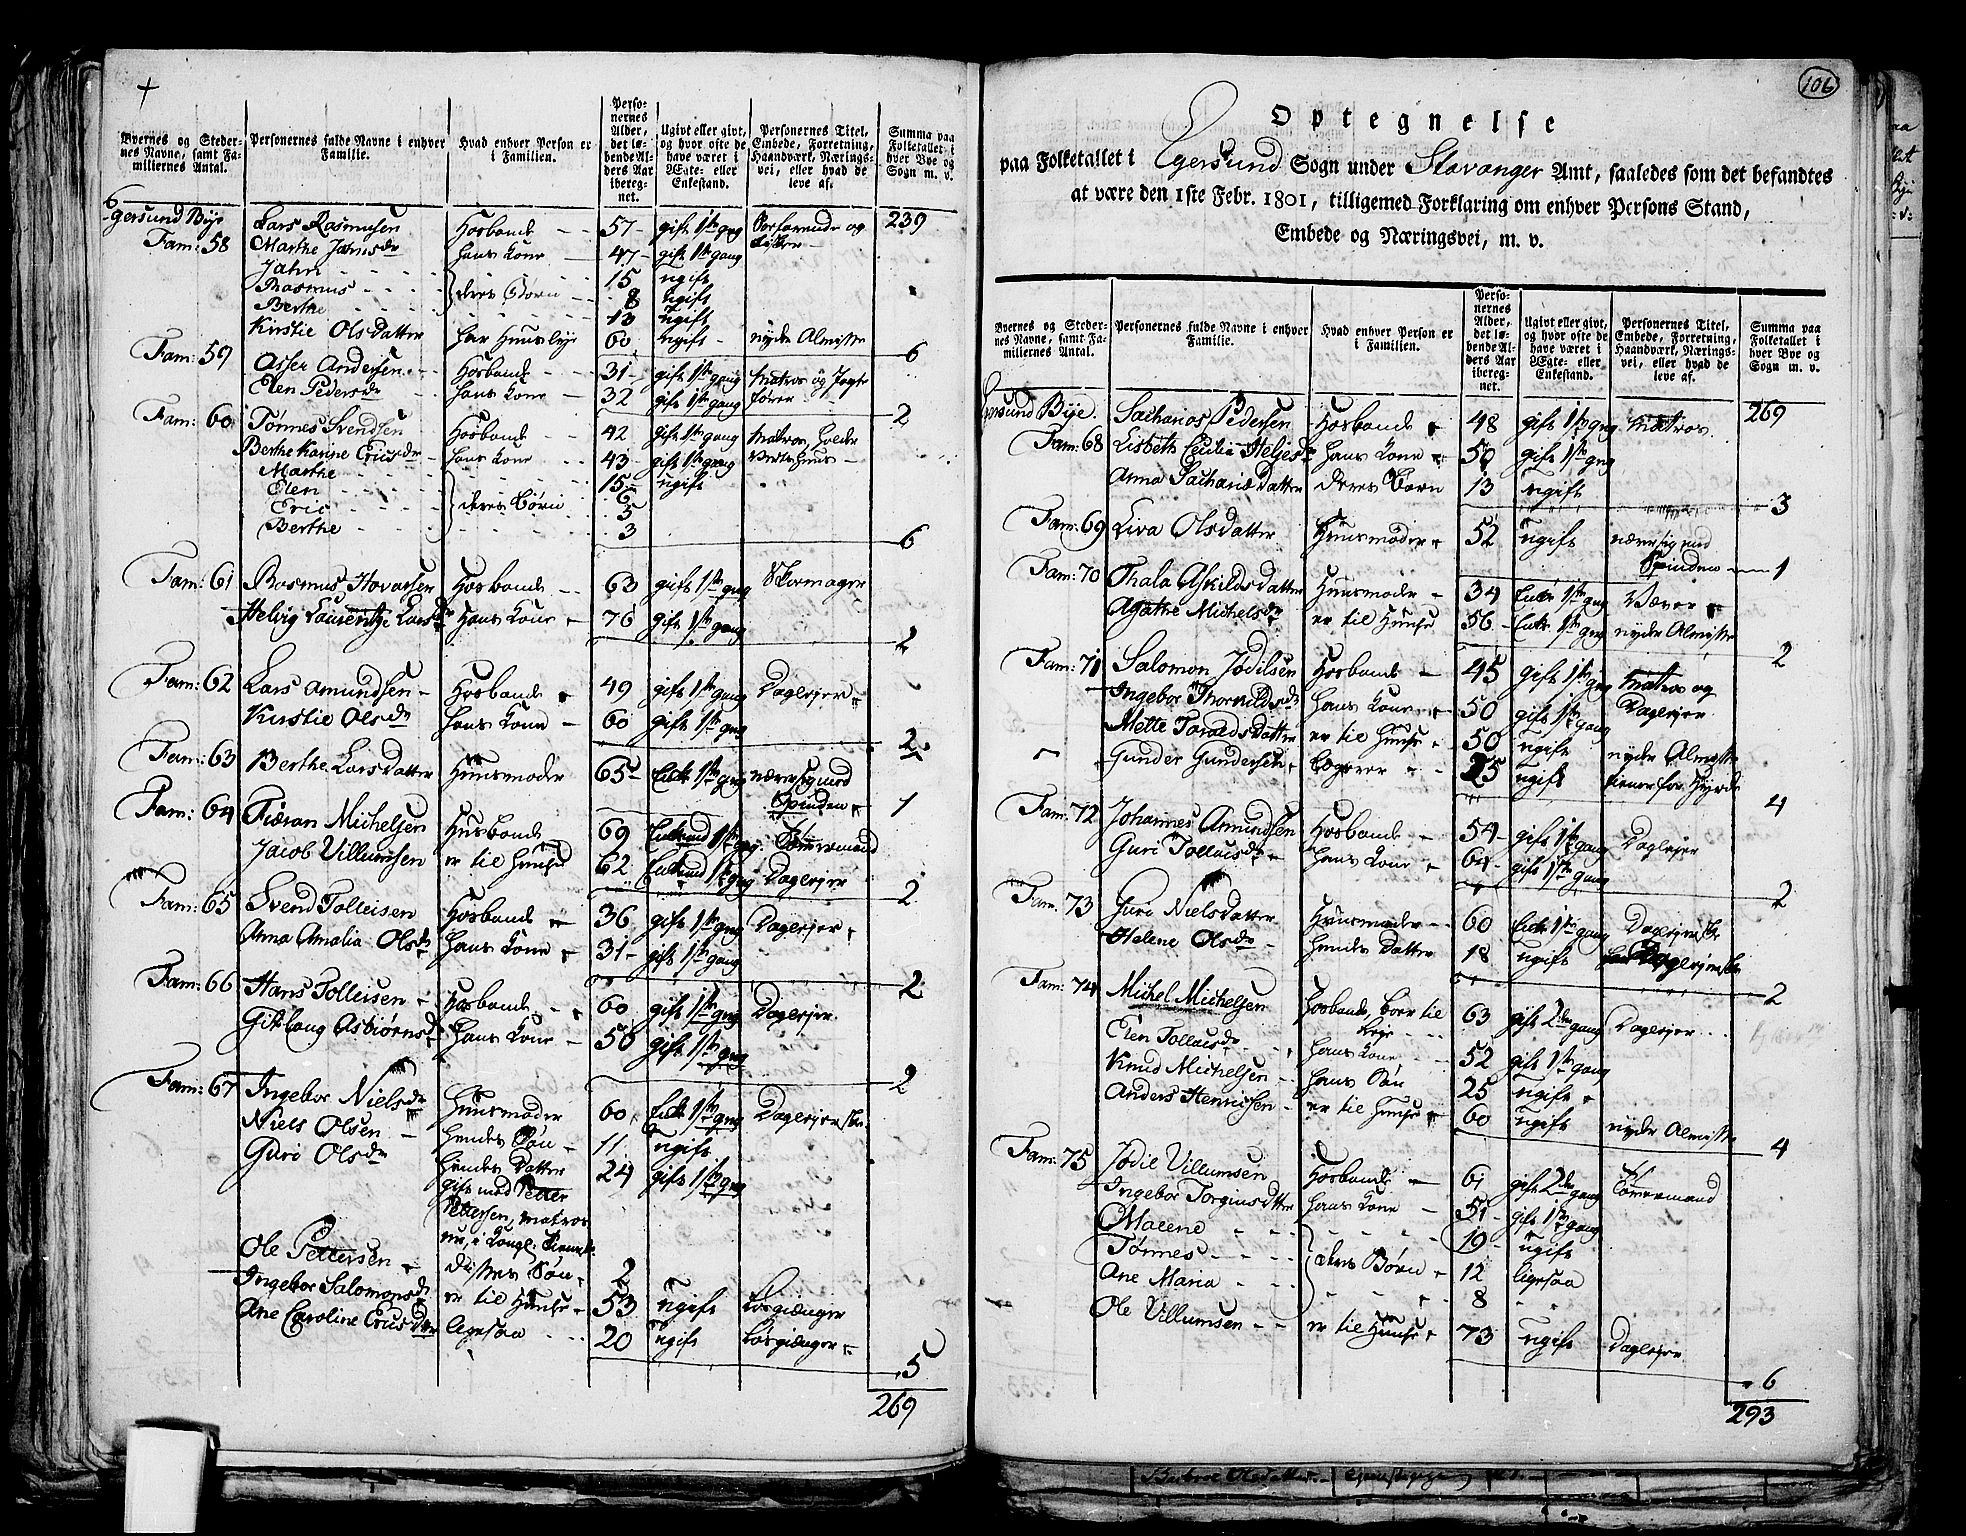 106
Byernes og Steder-
nes Navne, samt Fa-
miliernes Antal.
Personernes fulde Navne i enhver
Familie.
Hvad enhver Person er
i Familien.
Perso-
nernes
Alder,
det lø-
bende Al-
ders Aar
ibereg-
net.
Ugivt eller givt,
og hvor ofte de
have været i
Ægte- eller
Enkestand.
Personernes Titel,
Embede, Forretning,
Haandværk, Nærings-
vei, eller hvad de
leve af.
Summa paa
Folketallet i
hver Bye og
Sogn m. v.
Egersund Bye Lars Rasmusen Hosbonde 57 gift 1ste gng 239
Fam: 58 Marthe Jahnsdr hans Kone 47 gift 1ste gang
Jahn 15 ugift
Rasmus deres Børn 8 ugift
Berthe 13 ugift
Kirstie Olsdatter 60 ugift nyder Almisse
6
Fam: 59 Asser Andersen Hosbonde 31 gift 1ste gang Matros og Jagte
Elen Pedersdr hans Kone 32 gift 1ste gang fører
2
Fam: 60 Tønnes Svendsen Hosbonde 42 gift 1ste gang Matros, holder
Berthe Karine Ericsdr hans Kone 43 gift 1ste gang
Marthe 15 ugift
Elen 6
Eric deres Børn 5
Berthe 3
6
Fam: 61 Rasmus Hovarsen Hosbonde 63 gift 1ste gng Skoemager
Helvig Laurentze Larsdr Hans Kone 76 gift 1ste gang
2
Fam: 62 Lars Amundsen Hosbonde 49 gift 1ste gang Daglejer
Kirstie Olsdr hans Kone 60 gift 1ste gng
2
Fam: 63 Berthe Larsdatter Huusmoder 65 Enke 1ste gng nærer sig med
Spinden 1
Fam: 64 Michelsen Husbonde 69 Enkemand 1ste gng Tømmermand
Jacob Villumsen er til Huuse 62 Enkemand 1ste gng Daglejer
2
Fam: 65 Svend Tolleisen Hosbonde 36 gift 1ste gng Daglejer
Anna Amalia Olsdr hans Kone 31 gift 1ste gang
2
Fam: 66 Hans Tolleisen Hosbonde 60 gift 1ste gng Daglejer
Asbiørnsdr hans Kone 50 gift 1ste gng
2
Fam: 67 Ingebor Nielsdr Huusmoder 60 Enke 1ste gng Daglejerske
Niels Olsen hendes Søn 11 ugift
Guri Olsdr hendes Datter 24 gift 1ste gng
gift med Petter
Pettersen, matros
Ole Pettersen Søn 2
Ingebor Salomonsdr er til Huuse 53 ugift Løsgiænger
Ane Caroline Ericsdtr ligesaa 20 ugift Løsgiænger
5
269
Optegnelse
paa Folketallet i Egersund Sogn under Stavanger Amt, saaledes som det befandtes
at være den 1ste Febr. 1801, tilligemed Forklaring om enhver Persons Stand,
Embede og Næringsvei, m. v.
Byernes og Steder-
nes Navne, samt Fa-
miliernes Antal.
Personernes fulde Navne i enhver
Familie.
Hvad enhver Person er
i Familien.
Perso-
nernes
Alder,
det lø-
bende Al-
ders Aar
ibereg-
net.
Ugivt eller givt,
og hvor ofte de
have været i
Ægte- eller
Enkestand.
Personernes Titel,
Embede, Forretning,
Haandværk, Nærings-
vei, eller hvad de
leve af.
Summa paa
Folketallet i
hver Bye og
Sogn m. v.
Egersund Bye. Sacharias Pedersen Hosbonde 48 gift 1ste gng Matros 269
Fam: 68 Lisbeth Cecilia Heljesdr hans Kone 50 gift 1ste gng
Anna Sachariedatter deres Barn 13 ugift
3
Fam: 69 Liva Olsdatter Huusmoder 52 ugift nærer sig med
Spinden 1
Fam: 70 Thala Askildsdatter Huusmoder 34 Enke 1ste gng Væver
Agathe Michelsdr er til Huuse 56 Enke 1ste gng nyder Almisse
2
Fam: 71 Salomon Jødilsen Hosbonde 45 gift 1ste gng Matros og
Ingebor Thorkildsdr hans Kone 50 gift 1ste gang Daglejer
Mette Taraldsdatter er til Huuse 50 ugift nyder Almisse
Gunder Gundersen Logerer 25 ugift tiener for Hyrde
4
Fam: 72 Johannes Amundsen Hosbonde 54 gift 1ste gang Daglejer
Guri Tolleisdr hans Kone 64 gift 1ste gang
2
Fam: 73 Guri Nielsdatter Huusmoder 60 Enke 1ste gang Daglejerske
Helene Olsdr hendes Datter 18 ugift Daglejerske
2
Fam: 74 Michel Michelsen Hosbonde, boer til 63 gift 2den gang Daglejer
Leje
Elen Tolleisdr hans Kone 52 gift 1ste gang
Knud Michelsen hans Søn 25 ugift
Anders Henricsen er til Huuse 60 ugift nyder Almisse
4
Fam: 75 Jødil Villumsen Hosbonde 61 gift 2den gang Tømmermand
Ingebor Torgiusdtter hans Kone 51 gift 1ste gang
Malene 19 ugift
Tønnes deres Børn 12 ligesaa
Ane Maria 8
Ole Villumsen er til Huuse 73 ugift Daglejer
6
293